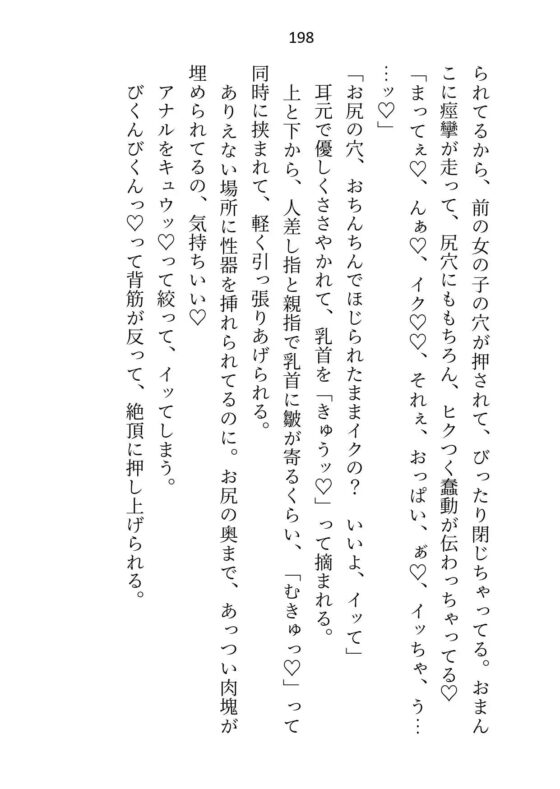 198
られてるから、前の女の子の穴が押されて、びったり閉じちゃってる。おまん
こに痙攣が走って、尻穴にももちろん、ヒクつく蠢動が伝わっちゃってる♡
「まってぇ♡、んぁ♡、イク♡♡、それぇ、おっぱい、ぁ゙♡、イッちゃ、う…
…ッ♡」
「お尻の穴、おちんちんでほじられたままイクの？　いいよ、イッて」
耳元で優しくささやかれて、乳首を「きゅうッ♡」って摘まれる。
上と下から、人差し指と親指で乳首に皺が寄るくらい、「むきゅっ♡」って
同時に挟まれて、軽く引っ張りあげられる。
ありえない場所に性器を挿れられてるのに。お尻の奥まで、あっつい肉塊が
埋められてるの、気持ちいい♡
アナルをキュウッ♡って絞って、イッてしまう。
びくんびくんっ♡って背筋が反って、絶頂に押し上げられる。